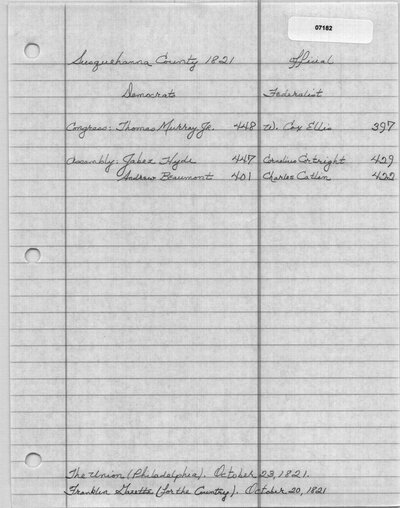 07182
Susquehanna County 1821 Official
Democrats Federalist
Congress: Thomas Murray Jr. 448 W. Cox Ellis 397
Assembly: Jabez Hyde 447 Cornelius Cortright 429
Andrew Beaumont 401 Charles Catlin 422
The Union (Philadelphia). October 23, 1821.
Franklin Gazette (For the Country). October 20, 1821